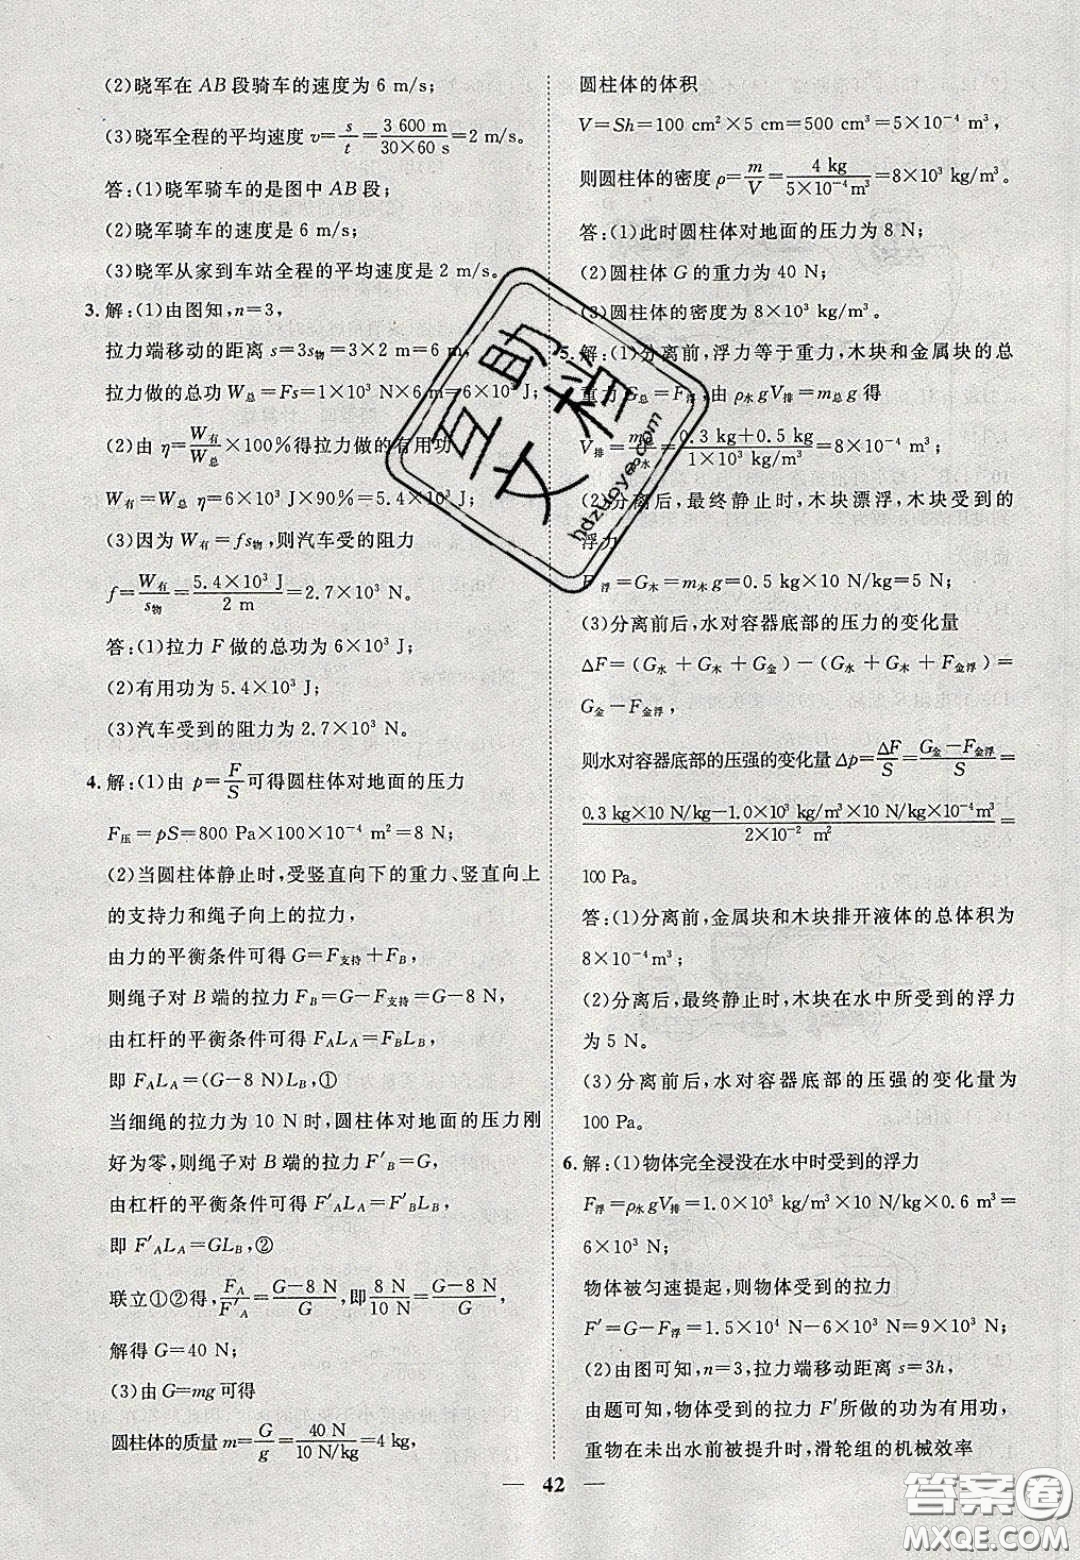 (2)晓军在 AB 段骑车的速度为 6 m/s;
(3)晓军全程的平均速度 v=s/t=3 600 m/30×60 s=2 m/s。
答:(1)晓军骑车的是图中 AB 段;
(2)晓军骑车的速度是 6 m/s;
(3)晓军从家到车站全程的平均速度是 2 m/s。
3. 解:(1)由图知,n=3,
拉力端移动的距离 s=3s物=3×2 m=6 m,
拉力做的总功 W总=Fs=1×10³ N×6 m=6×10³ J;
(2)由 η=W有/W总×100%得拉力做的有用功
W有=W总 η=6×10³ J×90%=5.4×10³ J;
(3)因为 W有=fs物,则汽车受的阻力
f=W有/s物=5.4×10³ J/2 m=2.7×10³ N。
答:(1)拉力 F 做的总功为 6×10³ J;
(2)有用功为 5.4×10³ J;
(3)汽车受到的阻力为 2.7×10³ N。
4. 解:(1)由 p=F/S可得圆柱体对地面的压力
F压=pS=800 Pa×100×10⁻⁴ m²=8 N;
(2)当圆柱体静止时,受竖直向下的重力、竖直向上
的支持力和绳子向上的拉力,
由力的平衡条件可得 G=F支持+FB,
则绳子对 B 端的拉力 FB=G−F支持=G−8 N,
由杠杆的平衡条件可得 FALA=FBLB,
即 FALA=(G−8 N)LB,①
当细绳的拉力为 10 N 时,圆柱体对地面的压力刚
好为零,则绳子对 B 端的拉力 F′B=G,
由杠杆的平衡条件可得 F′ALA=F′BLB,
即 F′ALA=GLB,②
联立①②得,FA/F′A=G−8 N/G,即8 N/10 N=G−8 N/G,
解得 G=40 N;
(3)由 G=mg 可得
圆柱体的质量 m=G/g=40 N/10 N/kg=4 kg,
圆柱体的体积
V=Sh=100 cm²×5 cm=500 cm³=5×10⁻⁴ m³,
则圆柱体的密度 ρ=m/V=4 kg/5×10⁻⁴m³=8×10³ kg/m³。
答:(1)此时圆柱体对地面的压力为 8 N;
(2)圆柱体 G 的重力为 40 N;
(3)圆柱体的密度为 8×10³ kg/m³。
5. 解:(1)分离前,浮力等于重力,木块和金属块的总
重力 G总=F浮,由 ρ水gV排=m总g 得
V排=m总/ρ水=0.3 kg+0.5 kg/1×10³ kg/m³=8×10⁻⁴ m³;
(2)分离后,最终静止时,木块漂浮,木块受到的
浮力
F浮=G木=m木g=0.5 kg×10 N/kg=5 N;
(3)分离前后,水对容器底部的压力的变化量
ΔF=(G水+G木+G金)−(G水+G木+F金浮)=
G金−F金浮,
则水对容器底部的压强的变化量 Δp=ΔF/S=G金−F金浮/S=
0.3 kg×10 N/kg−1.0×10³ kg/m³×10 N/kg×10⁻⁴m³/2×10⁻² m²=
100 Pa。
答:(1)分离前,金属块和木块排开液体的总体积为
8×10⁻⁴m³;
(2)分离后,最终静止时,木块在水中所受到的浮力
为 5 N。
(3)分离前后,水对容器底部的压强的变化量为
100 Pa。
6. 解:(1)物体完全浸没在水中时受到的浮力
F浮=ρ水gV排=1.0×10³ kg/m³×10 N/kg×0.6 m³=
6×10³ N;
物体被匀速提起,则物体受到的拉力
F′=G−F浮=1.5×10⁴ N−6×10³ N=9×10³ N;
(2)由图可知,n=3,拉力端移动距离 s=3h,
由题可知,物体受到的拉力 F′所做的功为有用功,
重物在未出水前被提升时,滑轮组的机械效率
42
互助
文档
hdzuoye.com
答案圈
MXQE.COM